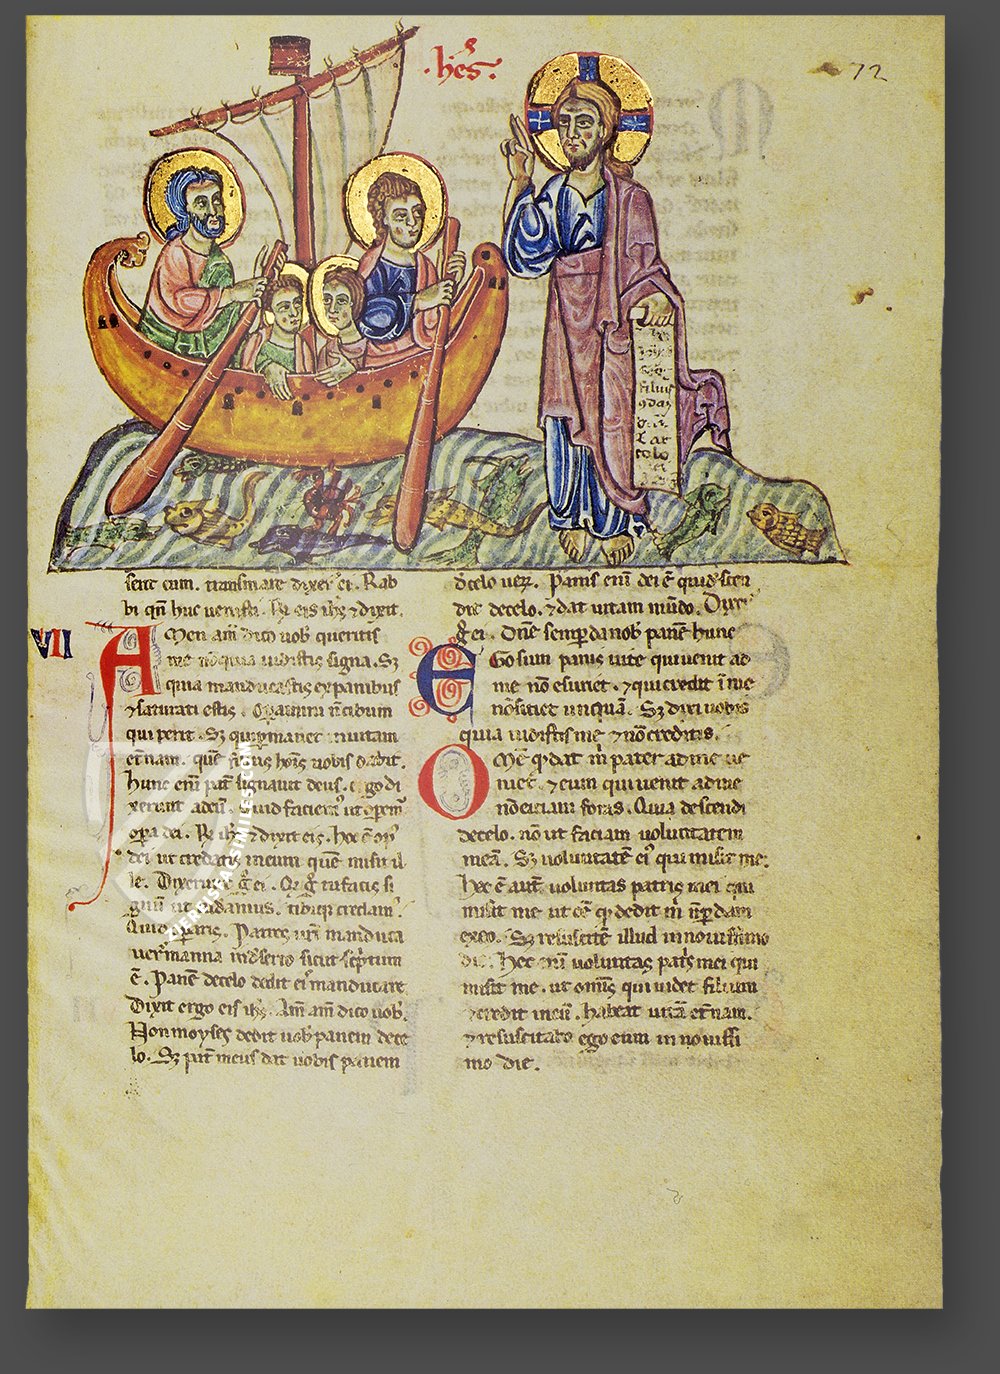 .hēs.
72
filius
sēte eum. transmare dixer̄t ei. Rab
bi qn̄ huc uenisti. R̄ eis ihs̄ ⁊ dixit.
VII
AMen am̄ dico uob̄ queritis
me nō quia uidistis signa. Sȝ
quia manducastis ex panibus
⁊ saturati estis. Opamini n̄ cibum
qui perit. Sȝ qui ꝑmanet in uitam
et̄nam. quē filius hoīs uobis dabit.
hunc eni pat̄ signauit deus. ergo di
xerunt ad eū. Quid faciem᷒ ut opem᷒
opa dei. R̄ ihs̄ ⁊ dixit eis. hec ē op᷒
dei ut credatis in eum quē misit il
le. Dixerunt ḡ ei. Q̄ ḡ tu facis si
gnū ut uidamus. ⁊ credam᷒.
Quid oꝑaris. Patres nr̄i manduca
uer̄ manna in deserto sicut sc̄ptum
ē. Panē de celo dedit ei᷒ manducare
Dixit ergo eis ihs̄. Am̄ am̄ dico uob̄.
Non moyses dedit uob̄ panem de ce
lo. Sȝ pat̄ meus dat uobis panem
d̄ celo uer̄. Panis eni dei ē qui descen
dit de celo. ⁊ dat uitam mūdo. Dixer̄
ḡ ei. Dn̄e semꝑ da nob̄ panē hunc
EGo sum panis uite qui uenit ad
me nō esuriet. ⁊ qui credit ī me
nō sitiet unquā. Sȝ dixi uobis
quia uidistis me ⁊ nō creditis.
OMē qd̄ dat m̄ pater ad me ue
niet. ⁊ eum qui uenit ad me
nō eiciam foras. Quia descendi
de celo. nō ut faciam uoluntatem
meā. Sȝ uoluntatē ei᷒ qui misit me.
hec ē aut̄ uoluntas patris mei qui
misit me ut oē qd̄ dedit m̄ n̄ ꝑdam
ex eo. Sȝ resuscitē illud in nouissimo
die. hec eni uoluntas pat̄s mei qui
misit me. ut omīs qui uidet filium
⁊ credit in eū. habeat uitā et̄nam.
⁊ resuscitabo ego eum in nouissi
mo die.